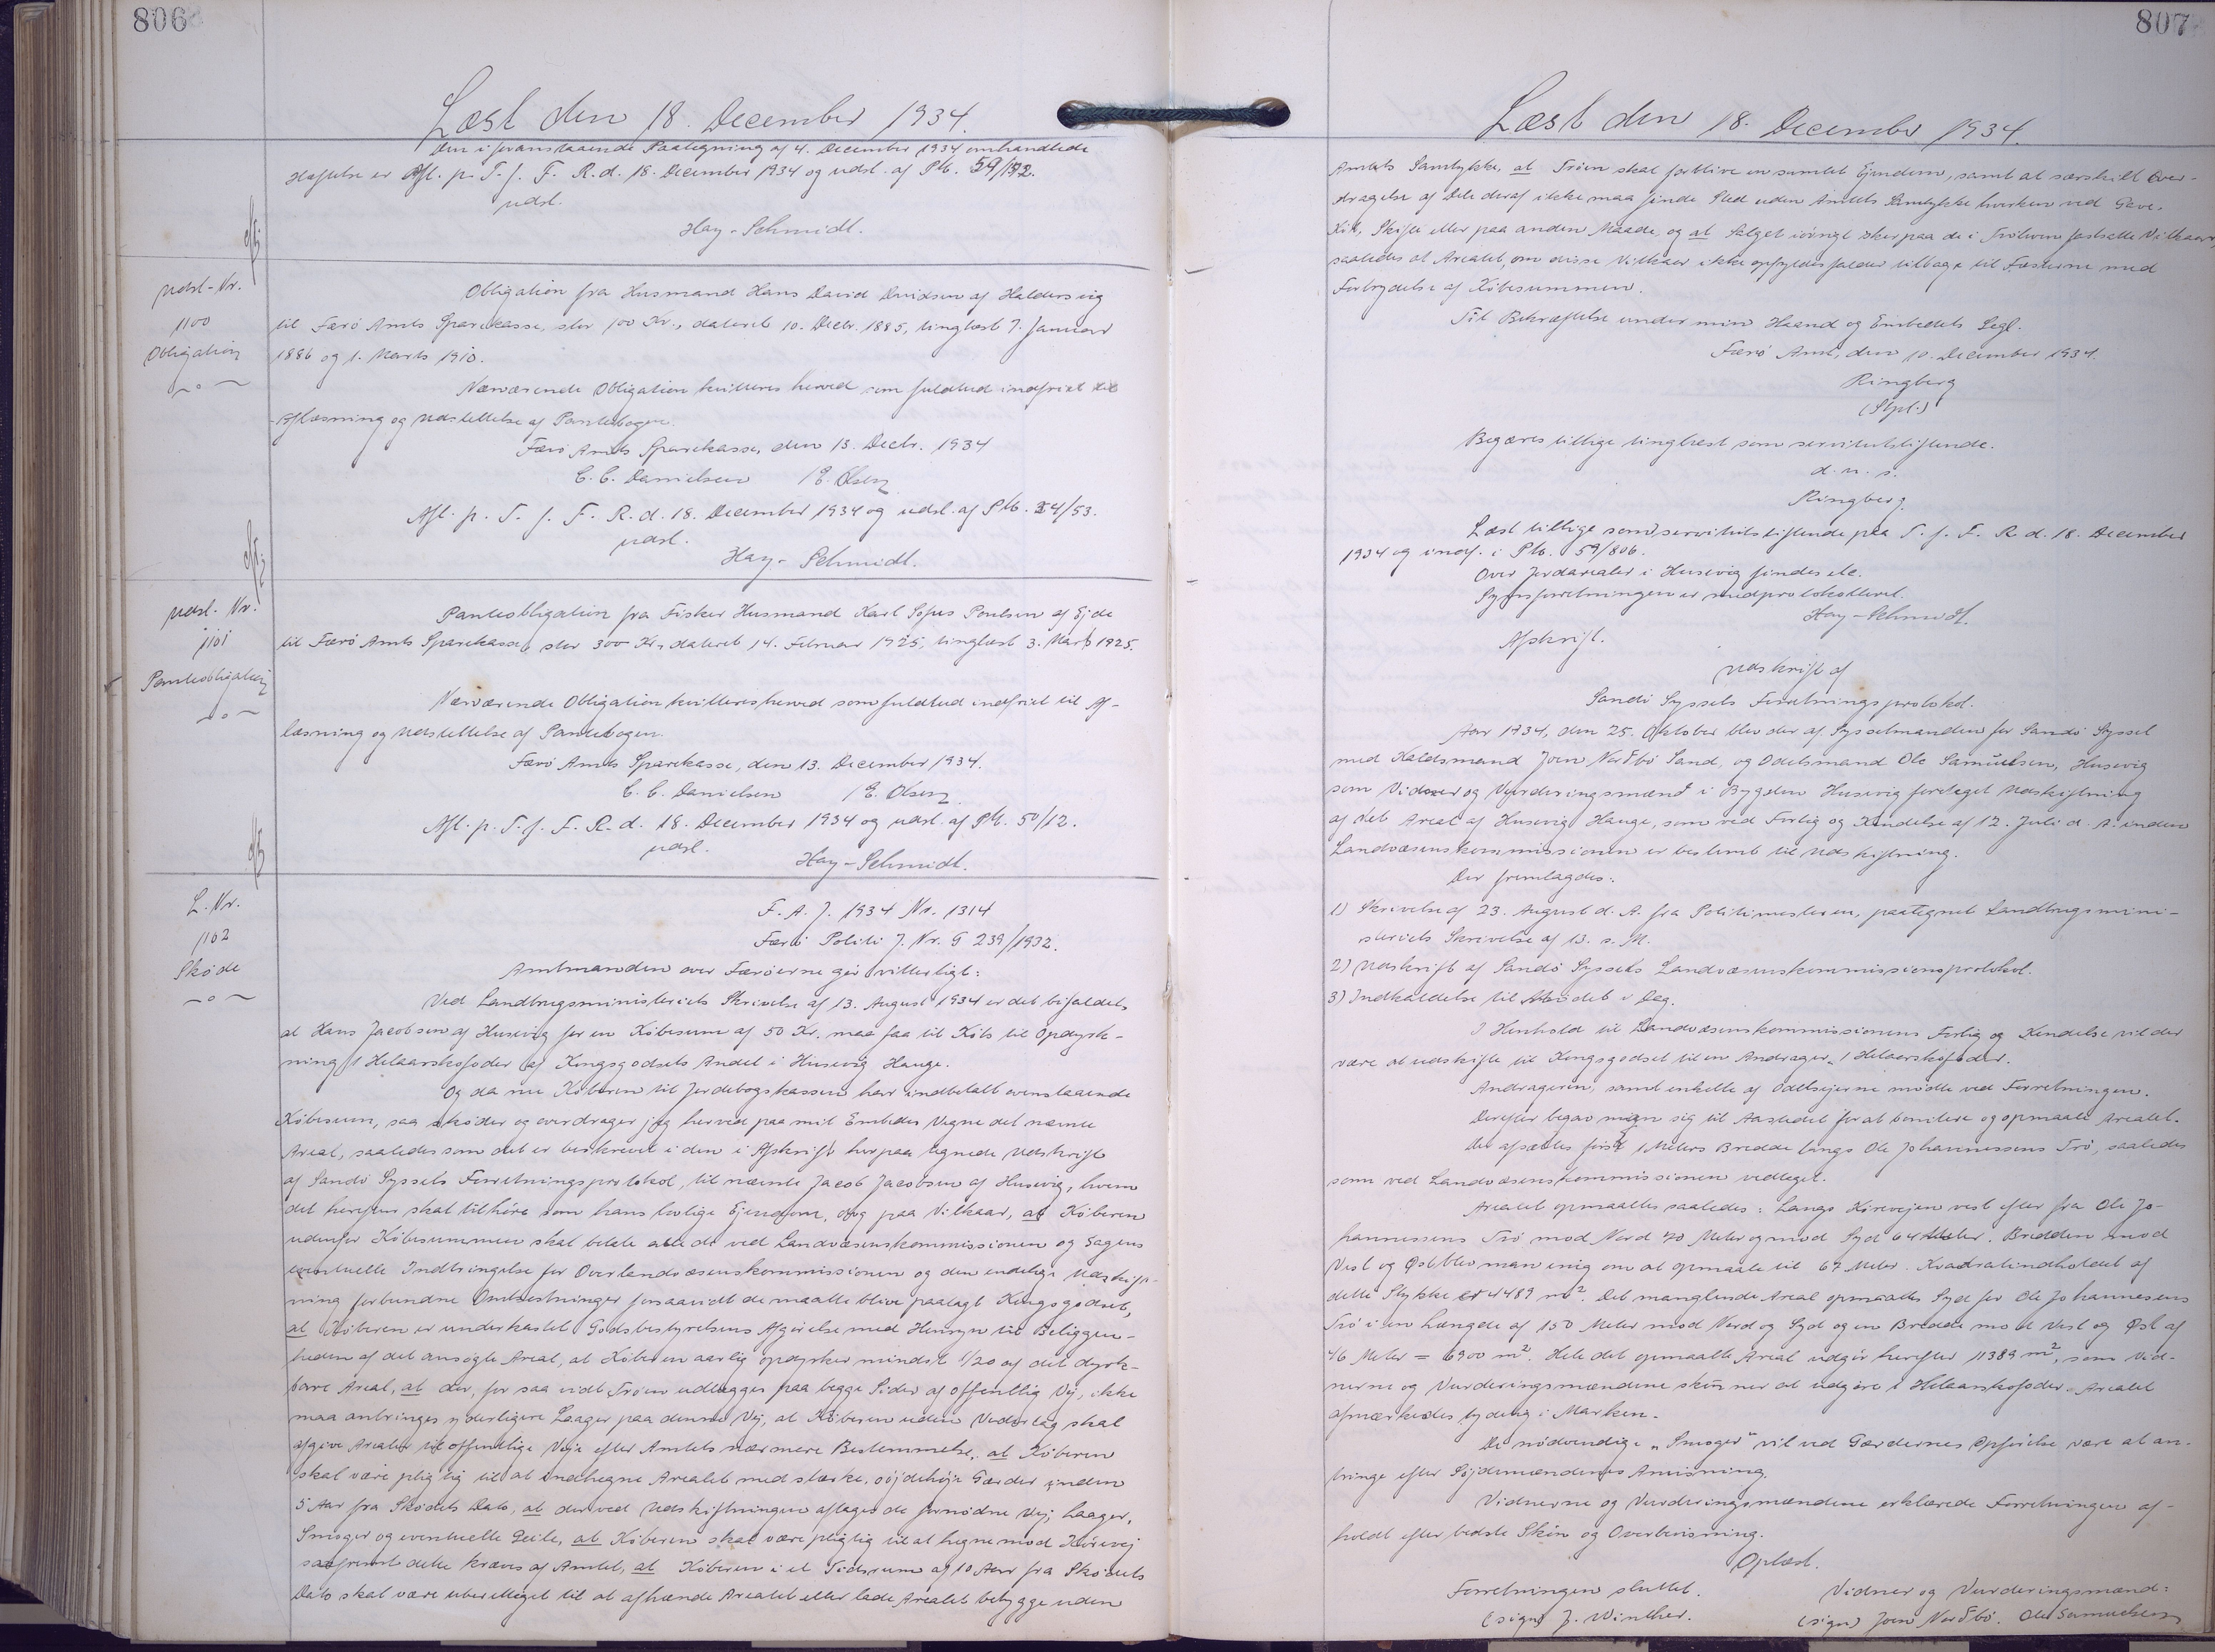 806
Læst den 18. December 1934.
Den i foranstaaende Paategning af 4. December 1934 omhandlede
Hæftelse er Afl. p. T. f. F. R. d. 18. December 1934 og udsl. af Ptb. 59/192.
udsl.
Hay-Schmidt.
udsl-Nr.
1100
Obligation
Obligation fra Husmand Hans David Davidsen af Haldersvig
til Færø Amts Sparekasse, stor 100 Kr., dateret 10. Decbr. 1885, tinglæst 7. Januar
1886 og 1. Marts 1910.
Nærværende Obligation kvitteres herved som fuldtud indfriet til
Aflæsning og Udslettelse af Pantebogen.
Færø Amts Sparekasse, den 13. Decbr. 1934
C. C. Danielsen / E. Olsen
Afl. p. T. f. F. R. d. 18. December 1934 og udsl. af Ptb. 34/53.
udsl.
Hay-Schmidt.
udsl. Nr.
1101
Panteobligation
Panteobligation fra Fisker Husmand Karl Sofus Poulsen af Ejde
til Færø Amts Sparekasse, stor 300 Kr., dateret 14. Februar 1925, tinglæst 3. Marts 1925.
Nærværende Obligation kvitteres herved som fuldtud indfriet til Af-
læsning og Udslettelse af Pantebogen.
Færø Amts Sparekasse, den 13. December 1934.
C. C. Danielsen / E. Olsen
Afl. p. T. f. F. R. d. 18. December 1934 og udsl. af Ptb. 50/12.
udsl.
Hay-Schmidt.
L. Nr.
1102
Skøde
F. A. J. 1934 Nr. 1314
Færø Politi J. Nr. G 239/1932.
Amtmanden over Færøerne gør vitterligt:
Ved Landbrugsministeriets Skrivelse af 13. August 1934 er det bifaldet,
at Hans Jacobsen af Husevig for en Købesum af 50 Kr. maa faa til Købs til Opdyrk-
ning 1 Helaarskofoder af Kongsgodsets Andel i Husevig Hauge.
Og da nu Køberen til Jordebogskassen har indbetalt ovenstaaende
Købesum, saa skøder og overdrager jeg herved paa mit Embedes Vegne det nævnte
Areal, saaledes som det er beskrevet i den i Afskrift herpaa tegnede Udskrift
af Sandø Syssels Forretningsprotokol, til nævnte Jacob Jacobsen af Husevig, hvem
det herefter skal tilhøre som hans lovlige Ejendom, dog paa Vilkaar, at Køberen
udenfor Købesummen skal betale alle de ved Landvæsenskommissionen og Sagens
eventuelle Indbringelse for Overlandvæsenskommissionen og den endelige Udskift-
ning forbundne Omkostninger forsaavidt de maatte blive paalagt Kongsgodset,
at Køberen er underkastet Godsbestyrelsens Afgørelse med Hensyn til Beliggen-
heden af det ansøgte Areal, at Køberen aarlig opdyrker mindst 1/20 af det dyrk-
bare Areal, at der, for saa vidt Trøen udlægges paa begge Sider af offentlig Vej, ikke
maa anbringes yderligere Laager paa denne Vej, at Køberen uden Vederlag skal
afgive Arealer til offentlige Veje efter Amtets nærmere Bestemmelse, at Køberen
skal være pligtig til at indhegne Arealet med stærke, sojdehøje Gærder inden
5 Aar fra Skødets Dato, at der ved Udskiftningen aflages de fornødne Vej, Laager,
Smoger og eventuelle Geile, at Køberen skal være pligtig til at hegne mod Kørevej
saafremt dette kræves af Amtet, at Køberen i et Tidsrum af 10 Aar fra Skødets
Dato skal være uberettiget til at afhænde Arealet eller lade Arealet bebygge uden
807
Læst den 18. December 1934.
Amtets Samtykke, at Trøen skal forblive en samlet Ejendom, samt at særskilt Over-
dragelse af Dele deraf ikke maa finde Sted uden Amtets Samtykke hverken ved Gave,
Køb, Skifte eller paa anden Maade, og at Salget iøvrigt sker paa de i Trøloven fastsatte Vilkaar,
saaledes at Arealet, om disse Vilkaar ikke opfyldes falder tilbage til Fæsterne med
Fortrydelse af Købesummen.
Til Bekræftelse under min Haand og Embedets Segl.
Færø Amt, den 10. December 1934.
Ringberg
(Stpl.)
Begæres tillige tinglæst som servitutstiftende.
d. u. s.
Ringberg.
Læst tillige som servitutstiftende paa T. f. F. R. d. 18. December
1934 og indf. i Ptb. 59/806.
Over Jordarealer i Husevig findes ele.
Synsforretningen er medprotokolleret.
Hay-Schmidt.
Afskrift.
Udskrift af
Sandø Syssels Forretningsprotokol.
Aar 1934, den 25. Oktober blev der af Sysselmanden for Sandø Syssel
med Kaldsmand Joen Norðbø Sand, og Odelsmand Ole Samuelsen, Husevig
som Vidner og Vurderingsmænd i Bygden Husevig foretaget Udskiftning
af det Areal af Husevig Hauge, som ved Forlig og Kendelse af 12. Juli d. A. inden
Landvæsenskommissionen er bestemt til Udskiftning.
Der fremlagdes:
1) Skrivelse af 23. August d. A. fra Politimesteren, paategnet Landbrugsmini-
steriets Skrivelse af 13. s. M.
2) Udskrift af Sandø Syssels Landvæsenskommissionsprotokol.
3) Indkaldelse til Mødet i Dag.
I Henhold til Landvæsenskommissionens Forlig og Kendelse vil der
være at udskifte til Kongsgodset til en Andrager 1 Helaarskofoder.
Andrageren, samt enkelte af Odelsejerne mødte ved Forretningen.
Derefter begav man sig til Aastedet for at bonitere og opmaale Arealet.
Der afsattes først 1 Meters Bredde langs Ole Johannessens Trø, saaledes
som ved Landvæsenskommissionen vedtaget.
Arealet opmaaltes saaledes: Langs Kirevejen vest efter fra Ole Jo-
hannessens Trø mod Nord 70 Meter og mod Syd 64 Meter. Bredden mod
Vest og Øst blev man enig om at opmaale til 67 Meter. Kvadratindholdet af
dette Stykke er 4489 m². Det manglende Areal opmaaltes Syd for Ole Johannesens
Trø i en Længde af 150 Meter mod Nord og Syd og en Bredde mod Vest og Øst af
46 Meter = 6900 m². Hele det opmaalte Areal udgør herefter 11389 m², som Vid-
nerne og Vurderingsmændene skønner at udgøre 1 Helaarskofoder. Arealet
afmærkedes tydelig i Marken.
De nødvendige "Smoger" vil ved Gærdernes Opførelse være at an-
bringe efter Sojdemændenes Anvisning.
Vidnerne og Vurderingsmændene erklærede Forretningen af-
holdt efter bedste Skøn og Overbevisning.
Oplæst.
Forretningen sluttet.
(sign) J. Winther.
Vidner og Vurderingsmænd:
(sign) Joen Norðbø. Ole Samuelsen